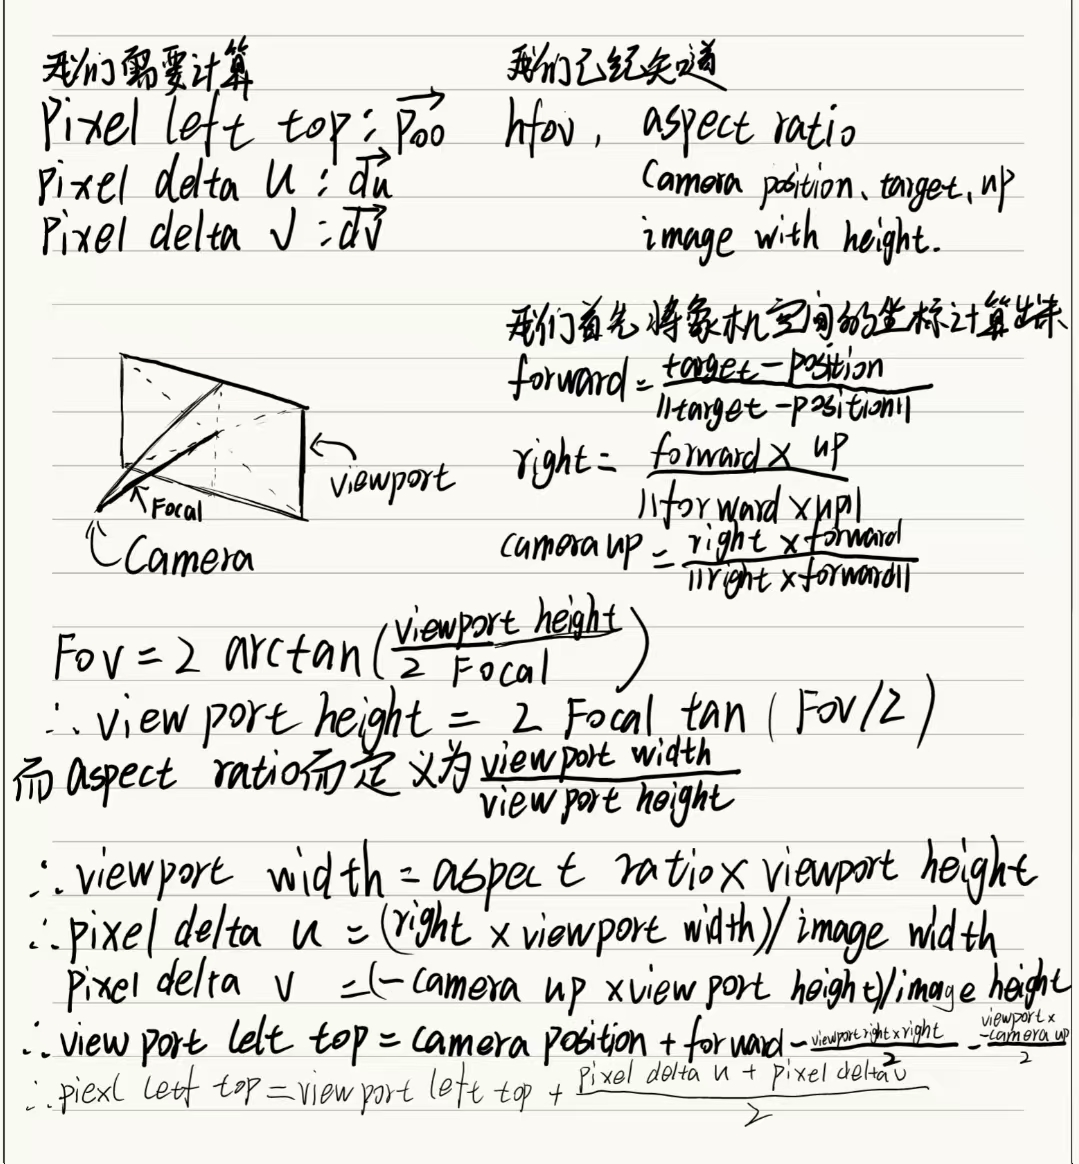 我们需要计算
Pixel left top: P₀₀
Pixel delta U: du
Pixel delta V: dv
我们已经知道
hfov, aspect ratio
Camera position、target, up
image with height.
我们首先将象机空间的坐标计算出来
forward = target - position / ||target - position||
right = forward × up / ||forward × up||
camera up = right × forward / ||right × forward||
viewport
Focal
Camera
Fov = 2 arctan(viewport height / 2 Focal)
∴ view port height = 2 Focal tan (Fov/2)
而 aspect ratio而定义为 viewport width / viewport height
∴ viewport width = aspect ratio × viewport height
∴ pixel delta u = (right × viewport width)/image width
pixel delta v = (-camera up × view port height)/image height
∴ view port left top = camera position + forward - viewport right × right / 2 - viewport × -camera up / 2
∴ piexl letf top = view port left top + Pixel delta u + pixel delta v / 2